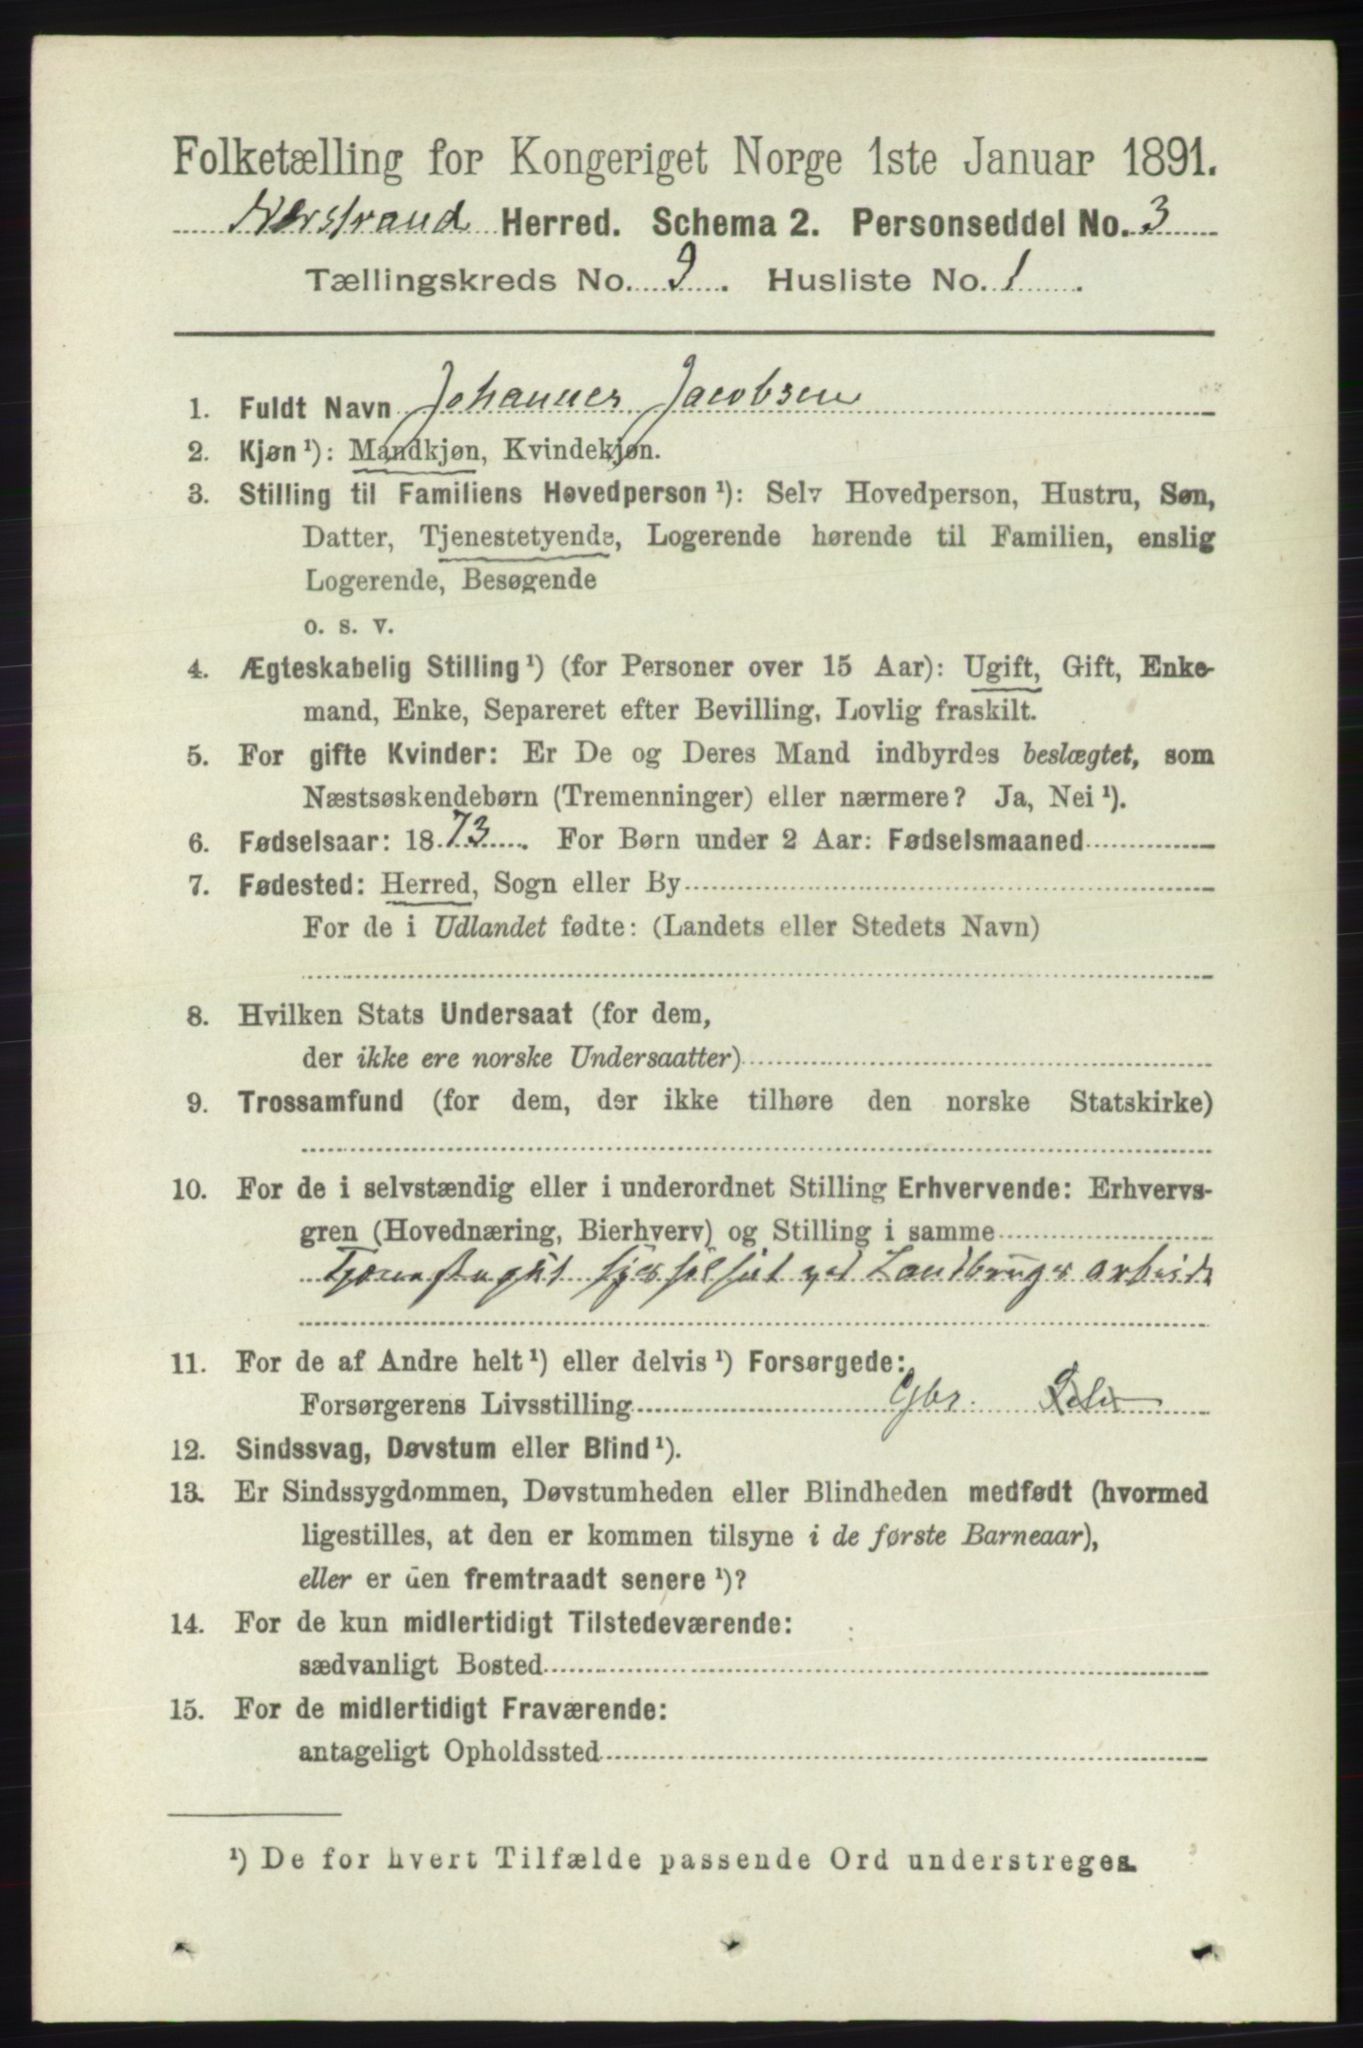 Folketælling for Kongeriget Norge 1ste Januar 1891.
Nærstrand Herred. Schema 2. Personseddel No. 3
Tællingskreds No. 9. Husliste No. 1.
1. Fuldt Navn Johannes Jacobsen
2. Kjøn¹): Mandkjøn, Kvindekjøn.
3. Stilling til Familiens Hovedperson¹): Selv Hovedperson, Hustru, Søn,
Datter, Tjenestetyende, Logerende hørende til Familien, enslig
Logerende, Besøgende
o. s. v.
4. Ægteskabelig Stilling¹) (for Personer over 15 Aar): Ugift, Gift, Enke-
mand, Enke, Separeret efter Bevilling, Lovlig fraskilt.
5. For gifte Kvinder: Er De og Deres Mand indbyrdes beslægtet, som
Næstsøskendebørn (Tremenninger) eller nærmere? Ja, Nei¹).
6. Fødselsaar: 1873. For Børn under 2 Aar: Fødselsmaaned
7. Fødested: Herred, Sogn eller By
For de i Udlandet fødte: (Landets eller Stedets Navn)
8. Hvilken Stats Undersaat (for dem,
der ikke ere norske Undersaatter)
9. Trossamfund (for dem, der ikke tilhøre den norske Statskirke)
10. For de i selvstændig eller i underordnet Stilling Erhvervende: Erhvervs-
gren (Hovednæring, Bierhverv) og Stilling i samme
Tjenestegut sysselsat ved Landbruges arbeide
11. For de af Andre helt¹) eller delvis¹) Forsørgede:
Forsørgerens Livsstilling Gbr.
12. Sindssvag, Døvstum eller Blind¹).
13. Er Sindssygdommen, Døvstumheden eller Blindheden medfødt (hvormed
ligestilles, at den er kommen tilsyne i de første Barneaar),
eller er den fremtraadt senere¹)?
14. For de kun midlertidigt Tilstedeværende:
sædvanligt Bosted
15. For de midlertidigt Fraværende:
antageligt Opholdssted
¹) De for hvert Tilfælde passende Ord understreges.